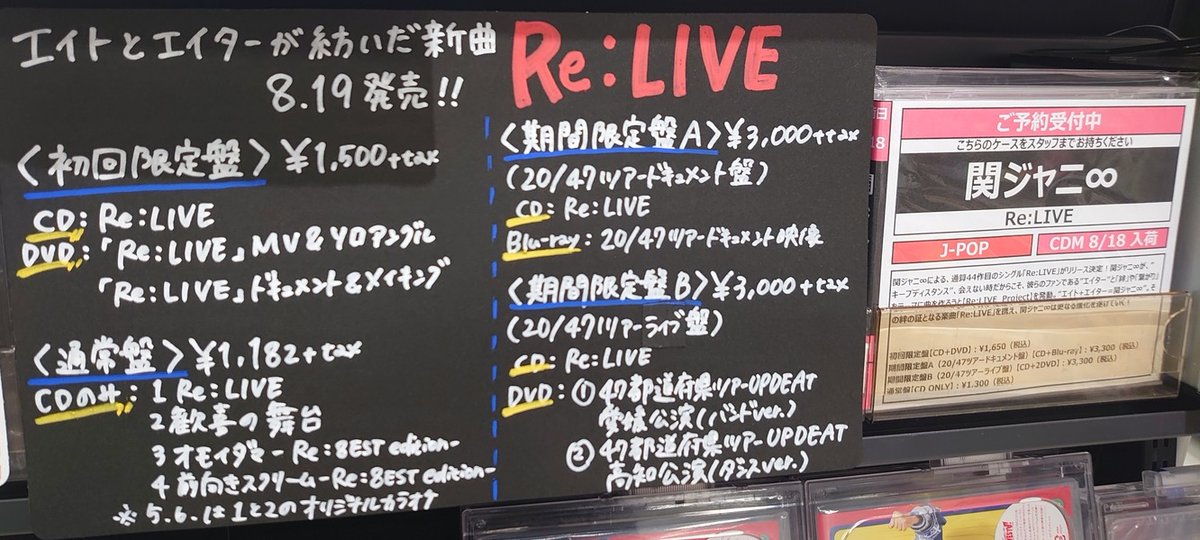 エイトとエイターが紡いだ新曲
8.19発売!!
Re:LIVE
〈初回限定盤〉¥1,500+tax
CD:Re:LIVE
DVD:「Re:LIVE」MV&ソロアングル
「Re:LIVE」ドキュメント&メイキング
〈通常盤〉¥1,182+tax
CDのみ:1 Re:LIVE
2 歓喜の舞台
3 オモイダマ-Re:8EST edition-
4 前向きスクリーム-Re:8EST edition-
※5.6.は1と2のオリジナルカラオケ
〈期間限定盤A〉¥3,000+tax
(20/47ツアードキュメント盤)
CD:Re:LIVE
Blu-ray:20/47ツアードキュメント映像
〈期間限定盤B〉¥3,000+tax
(20/47ツアーライブ盤)
CD:Re:LIVE
DVD:①47都道府県ツアーUPDEAT
愛媛公演(バンドver.)
②47都道府県ツアーUPDEAT
高知公演(ダンスver.)
ご予約受付中
こちらのケースをスタッフまでお持ちください
関ジャニ∞
Re:LIVE
J-POP
CDM 8/18 入荷
関ジャニ∞による、通算44作目のシングル「Re:LIVE」がリリース決定！関ジャニ∞が、"
キープディスタンス"、会えない時だからこそ、彼らのファンである"エイター"と"絆"や"繋がり"
をテーマに曲を作ろうと「Re:LIVE Project」を発動。"エイト+エイター=関ジャニ∞"。そ
の絆の証となる楽曲「Re:LIVE」を携え、関ジャニ∞は更なる進化を遂げていく！
初回限定盤【CD+DVD】:¥1,650（税込）
期間限定盤A（20/47ツアードキュメント盤）【CD+Blu-ray】:¥3,300（税込）
期間限定盤B（20/47ツアーライブ盤）【CD+2DVD】:¥3,300（税込）
通常盤【CD ONLY】:¥1,300（税込）